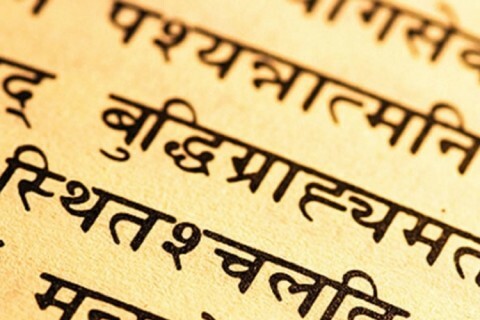 गसेव
पश्यन्नात्मनि
द् बुद्धिग्राह्यमत
स्थितश्चलति